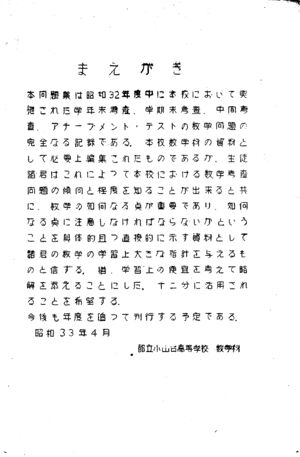 まえがき
本問題集は昭和32年度中に本校において実
施された学年末考査、学期末考査、中間考
査、アチーブメント・テストの数学問題の
完全なる記録である。本校数学科の資料と
して必要上編集されたものであるが、生徒
諸君はこれによつて本校における数学考査
問題の傾向と程度を知ることが出来ると共
に、数学の如何なる点が重要であり、如何
なる点に注意しなければならないかという
ことを具体的且つ直接的に示す資料として
諸君の数学の学習上大きな指針を与えるも
のと信する。猶、学習上の便宜を考えて略
解を添えることにした。十二分に活用され
ることを希望する。
今後も年度を追つて刊行する予定である。
昭和33年4月
都立小山台高等学校 数学科